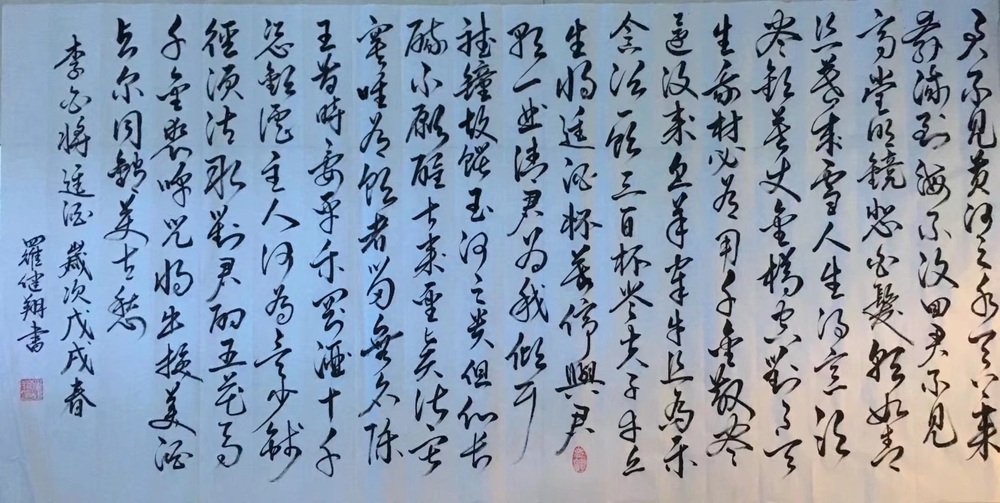 君不見黄河之水天上来
奔流到海不復回君不見
高堂明鏡悲白髮朝如青
丝暮成雪人生得意須
尽歡莫使金樽空對月天
生我材必有用千金散尽
還復来烹羊宰牛且為樂
會須一飲三百杯岑夫子丹丘
生将進酒杯莫停與君
歌一曲請君为我傾耳
聽鐘鼓饌玉何足贵但願长
醉不願醒古来聖賢皆寂
寞唯有飲者留其名陈
王昔時宴平樂斗酒十千
恣歡謔主人何為言少錢
徑須沽取對君酌五花馬
千金裘呼兒将出换美酒
与尔同銷万古愁
李白將進酒 歲次戊戌春
羅健翔書